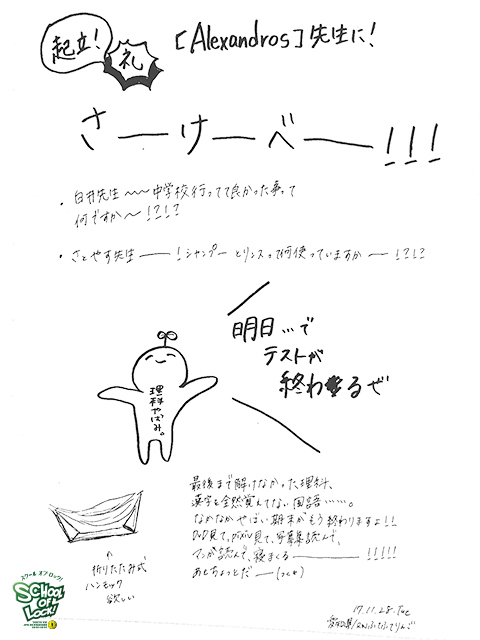 起立!
礼
[Alexandros]先生に!
さーけーべー!!!
・白井先生〜〜中学校行ってて良かった事って
何ですか〜!?!?
・さとやす先生ー!シャンプーとリンスって何使っていますかー!?!?
明日…で
テストが
終わるぜ
理科やばみ。
最後まで解けなかった理科、
漢字を全然覚えてない国語……。
なかなかやばい期末がもう終わりますよ!!
DVD見て、 見て、写真集読んで、
マンガ読んで、寝まくるー!!!!!
あとちょっとだー
↑
折りたたみ式
ハンモック
欲しい
スクール オブ ロック!
SCHOOL OF LOCK!
17.11.28.Tue